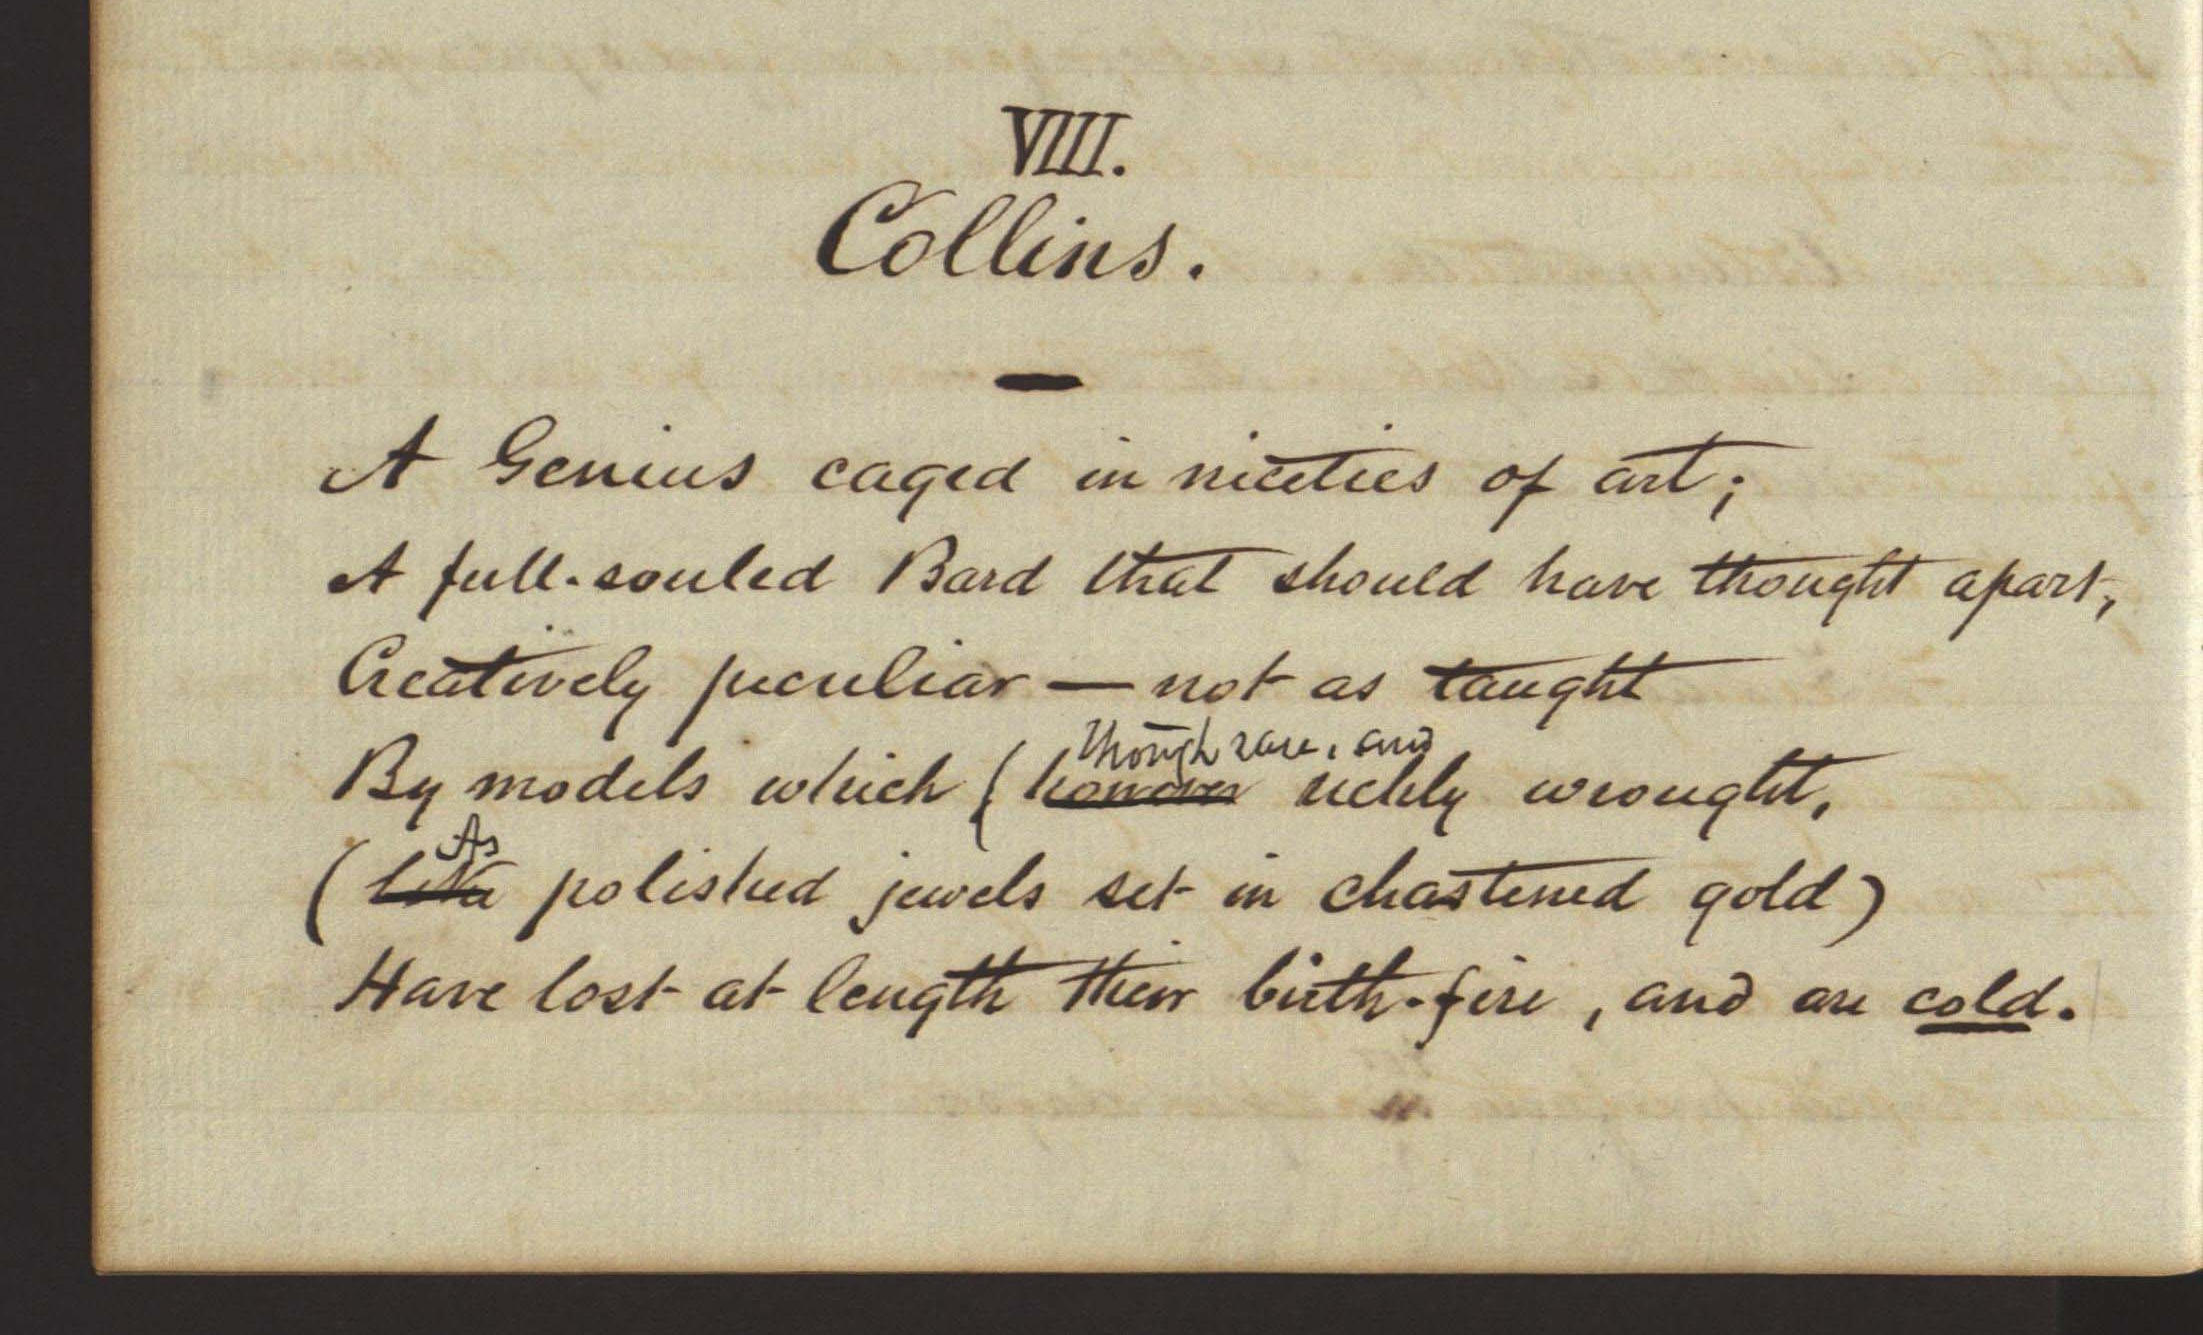 VIII.
Collins.
A Genius caged in niceties of art;
A full-souled Bard that should have thought apart,
Creatively peculiar — not as taught
though rare, and
By models which (however richly wrought,
As
(like polished jewels set in chastened gold)
Have lost at length their birth-fire, and are cold.